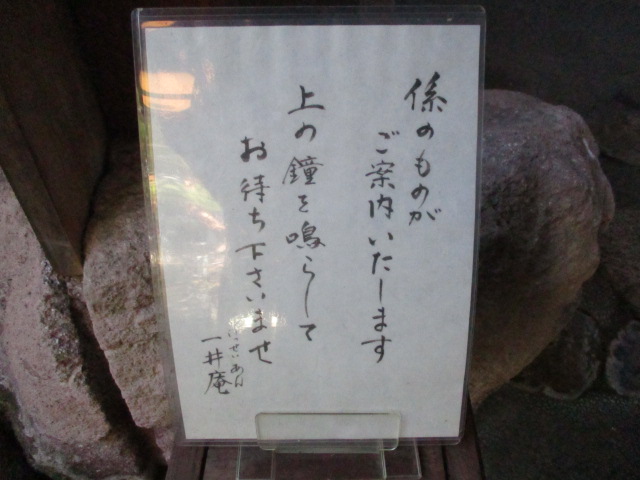 係のものが
ご案内いたします
上の鐘を鳴らして
お待ち下さいませ
いっせいあん
一井庵